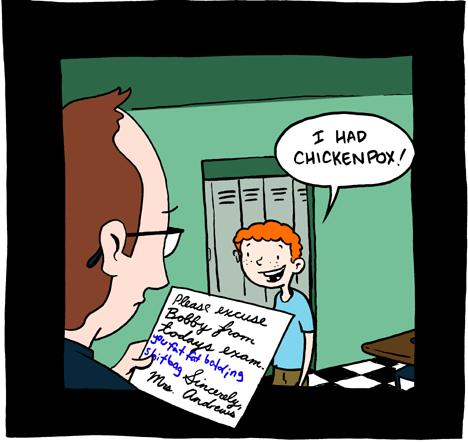 I HAD
CHICKENPOX!
Please excuse
Bobby from
todays exam.
you fat fat balding
shitbag Sincerely,
Mrs. Andrews